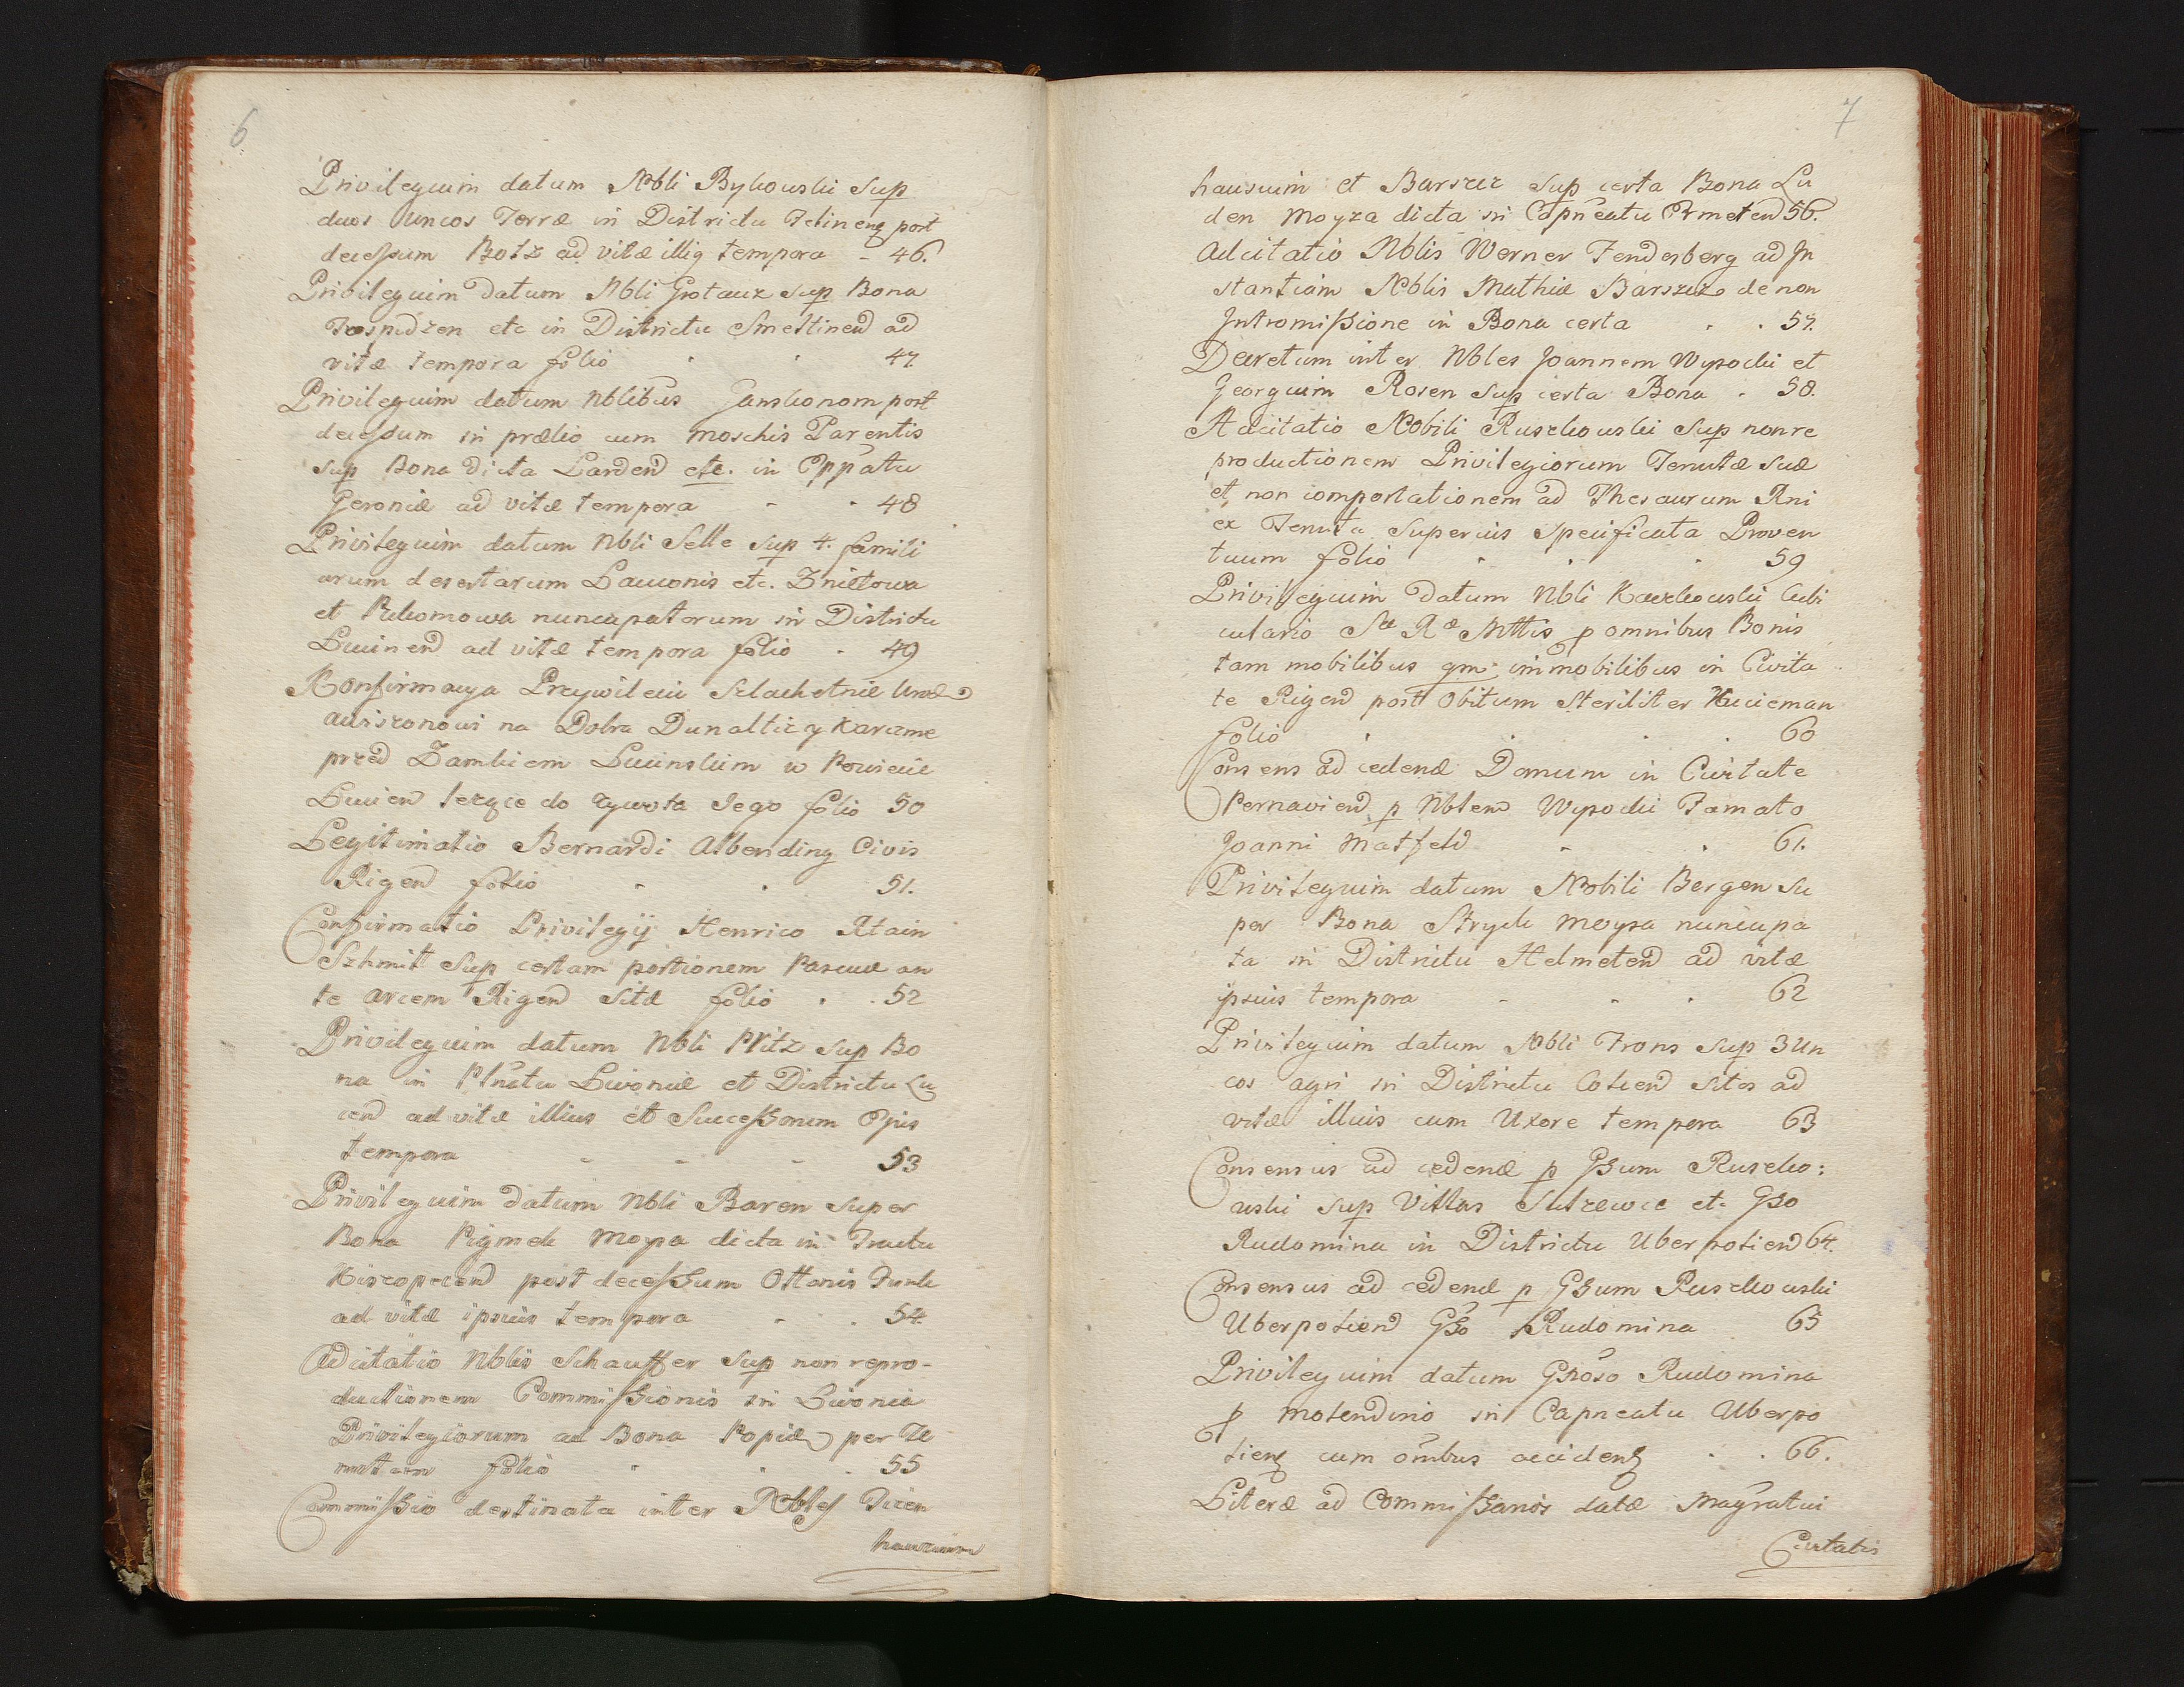 6
Privilegium datum Nbli Bykowski Sup
duos Uncos Terræ in Districtu Felinenẜ post
decessum Botz ad vitæ illig tempora - 46.
Privilegium datum Nbli Grotauz Sup Bona
in Districtu Smeltinen ad
vitæ tempora folio 47.
Privilegium datum Nblibus Janskonom post
decessum in prælio cum Moschis Parentis
Sup Bona dicta Larden etc. in Oppatu
Geroniæ ad vitæ tempora - 48
Privilegium datum Nbli Selle Sup 4. famili
arum desertarum Lauuonis etc. Znictowa
et Pukomowa nuncupatorum in Districtu
Lucinen ad vitæ tempora folio - 49
Konfirmacya Przywileiu Szlachetnie
na Dobra Dunaltic y Karczme
przed Zamkiem Lucinskim w Powiecie
Lucien lezące do zywota Jego folio 50
Legitimatio Bernardi Albending Civis
Rigen folio 51.
Confirmatio Privilegij Henrico Rtain
Szhmit Sup certam portionem Pascuæ an
te arcem Rigen Sitæ folio . . 52
Privilegium datum Nbli Plitz Sup Bo
na in Plnatu Livoniæ et Districtu Lu
cen ad vitæ illius et Successorum Ojus
tempora - - - 53
Privilegium datum Nbli Baren Super
Bona Pigmek Moysa dicta in Tractu
Kiszopecen post decessum Ottonis Funk
ad vitæ ipsius tempora - . 54.
Adcitatio Nblis Schauffer Sup non repro-
ductionem Commissionis in Livonia
Privilegiorum ad Bona per Te
nutam folio 55
Commissio destinata inter Nbles Ticen
hausium
7
hausium et Barszcz Sup certa Bona Lu
den Moyza dicta in Capneatu Ermeten 56.
Adcitatio Nblis Werner Fendesberg ad In
stantiam Nblis Mathiæ Barszcz de non
Intromissione in Bona certa . . 57.
Decretum inter Nbles Joannem Wysocki et
Georgium Rosen Sup certa Bona . 58.
Adcitatio Nobili Ruszkowski Sup nonre
productionem Privilegiorum Tenutæ suæ
et non comportationem ad Thesaurum Rni
ex Tenuta Superius Specificata Proven
tuum folio . . . 59
Privilegium datum Nbli Kaczkowski Cubi
culario Sæ Ræ Mttis p omnibus Bonis
tam mobilibus qm immobilibus in Civita
te Rigen post Obitum Steriliter Kucieman
folio 60
Consens ad cedenæ Domum in Civitate
Pernavien p Nblem Wysocki Famato
Joanni Matfeld - . 61.
Privilegium datum Nobili Bergen Su
per Bona Stryck Moysa nuncupa
ta in Districtu Helmeten ad vitæ
ipsius tempora - - . 62
Privilegium datum Nbli Frons Sup 3 Un
cos agri in Districtu Cokien Sitos ad
vitæ illius cum Uxore tempora 63
Consensus ad cedenæ p Gsum Ruszko:
wski Sup Villas Sutzewce etc Gso
Rudomina in Districtu Uberpolien 64.
Consensus ad cedenæ p Gsum Ruszkowski
Uberpolien Gso Rudomina 65
Privilegium datum Gsoso Rudomina
p Molendino in Capneatu Uberpo
lienẜ cum ombus accidenẜ . . 66.
Literæ ad Commissarios datæ Magratui
Civitatis